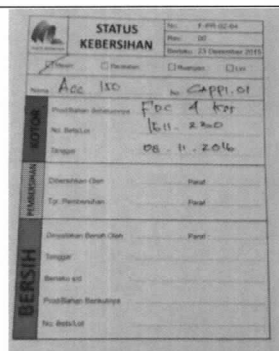 STATUS
KEBERSIHAN
No. F-PR-02-64
Rev. 00
Berlaku 23 Desember 2015
Mesin Peralatan Ruangan Lini
Nama Acc 150 No CAPPI.01
KOTOR
Prod/Bahan Sebelumnya FDC 4
No. Bets/Lot
Tanggal 08.11.2016
PEMBERSIHAN
Dibersihkan Oleh Paraf
Tgl. Pembersihan Paraf
BERSIH
Dinyatakan Bersih Oleh Paraf
Tanggal
Berlaku s/d
Prod/Bahan Berikutnya
No. Bets/Lot